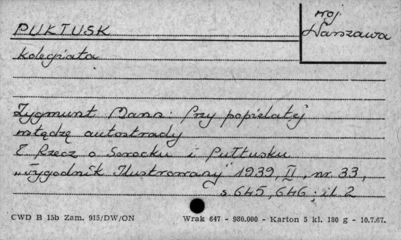 PUKTUSK
woj
Warszawa
kolegiata
Zygmunt Mann: Przy popielatej
wstędze autostrady
E Rzecz o Serocku i Pułtusku
„Tygodnik Ilustrowany" 1939, II, nr. 33,
s 645, 646 : il. 2
CWD B 15b Zam. 915/DW/ON Wrak 647 - 980.000 - Karton 5 kl. 180 g - 10.7.67.